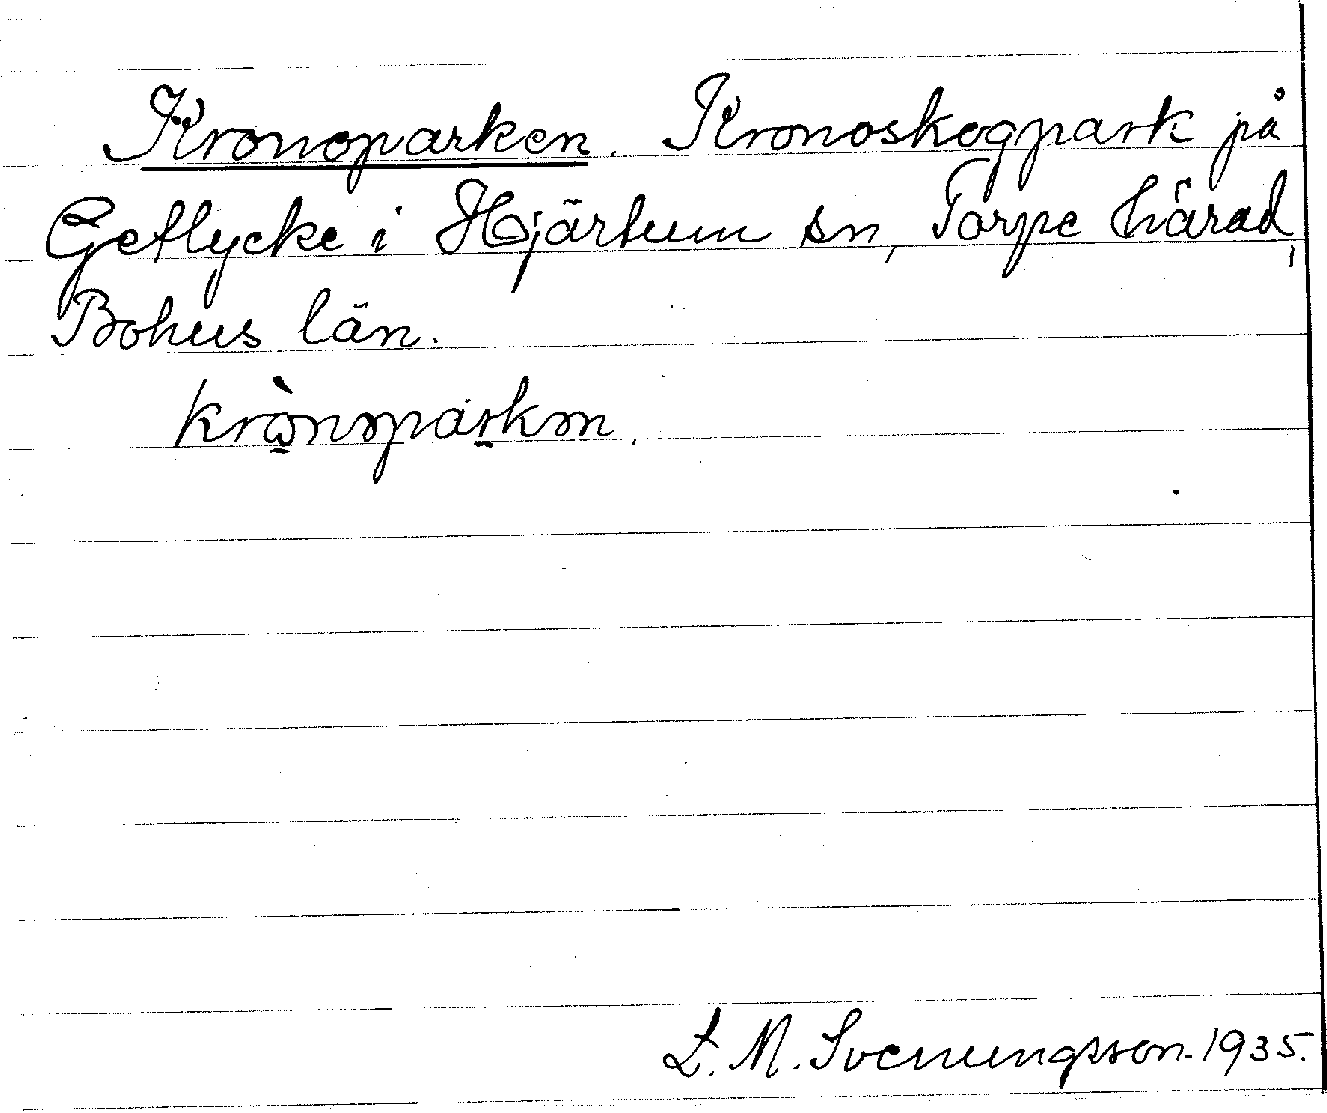 Kronoparken. Kronoskogpark på
Getlycke i Hjärtum sn, Torpe härad,
Bohus län.
krònəparkən.
L. M. Svenungsson. 1935.